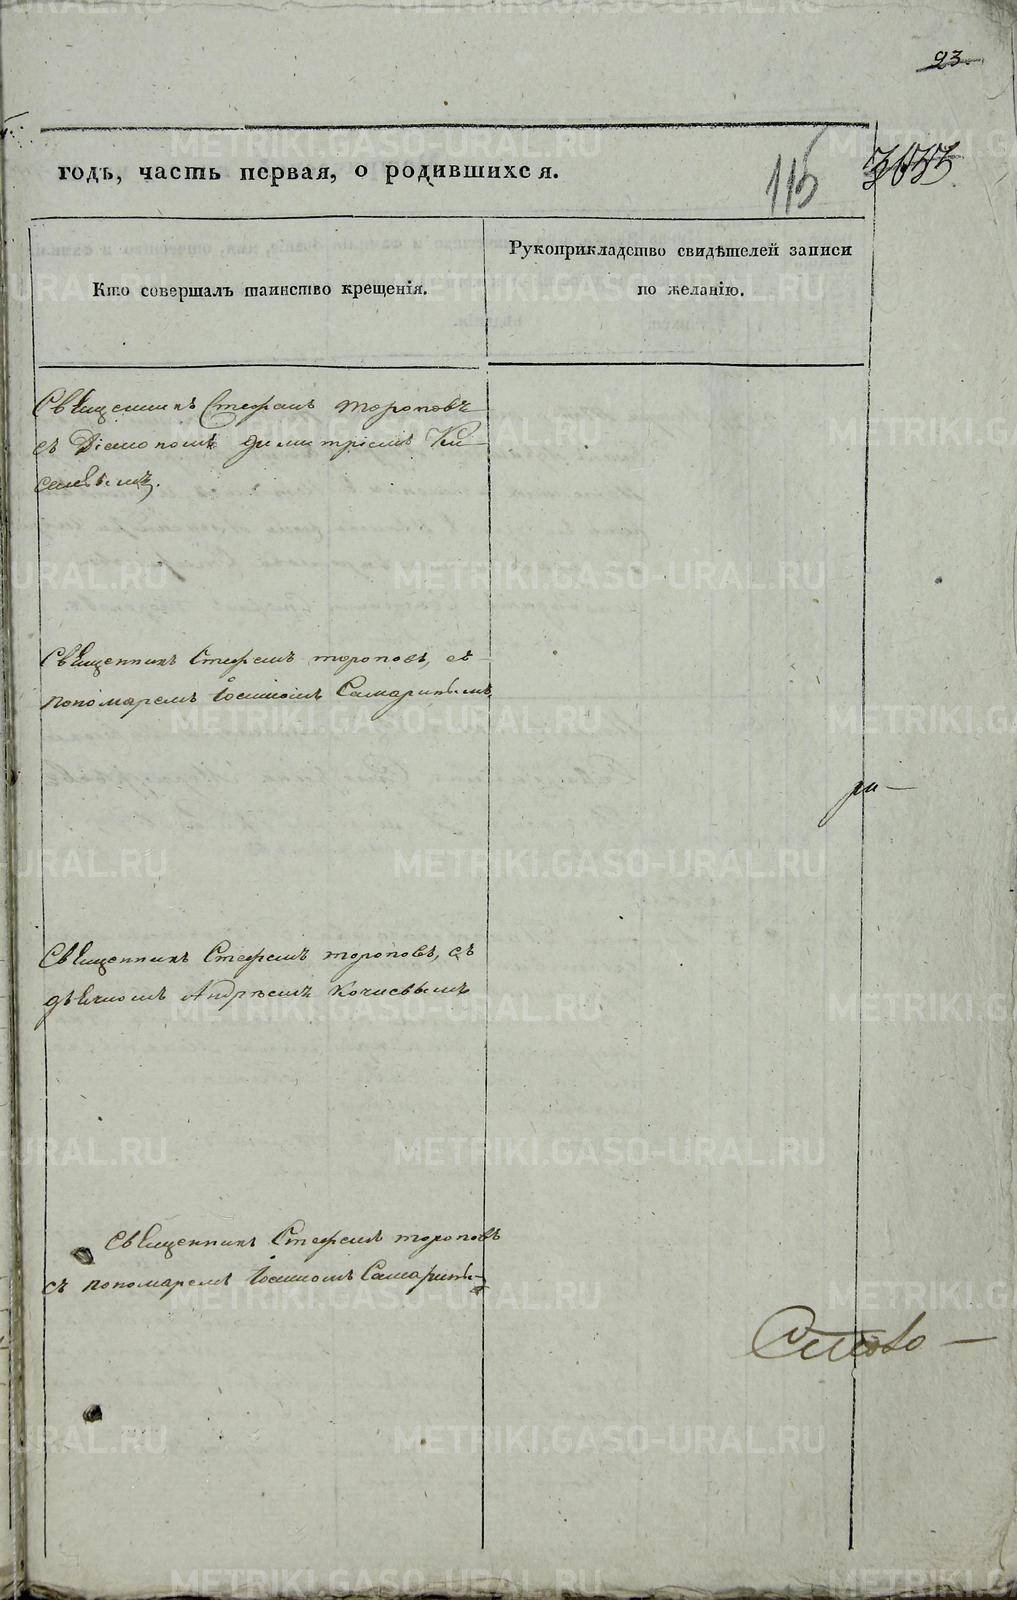 93
годъ, часть первая, о родившихся.
115
Кто совершалъ таинство крещенія.
Рукоприкладство свидѣтелей записи
по желанію.
Священникъ Стефанъ тороповъ
съ Діакономъ димитріемъ Ки
Священникъ Стефанъ тороповъ, съ
пономаремъ Іоанномъ Самаринымъ
ра
Священникъ Стефанъ тороповъ, съ
дьячкомъ Андреемъ Кочневымъ
Священникъ Стефанъ тороповъ
съ пономаремъ Іоанномъ Самарины
METRIKI.GASO-URAL.RU